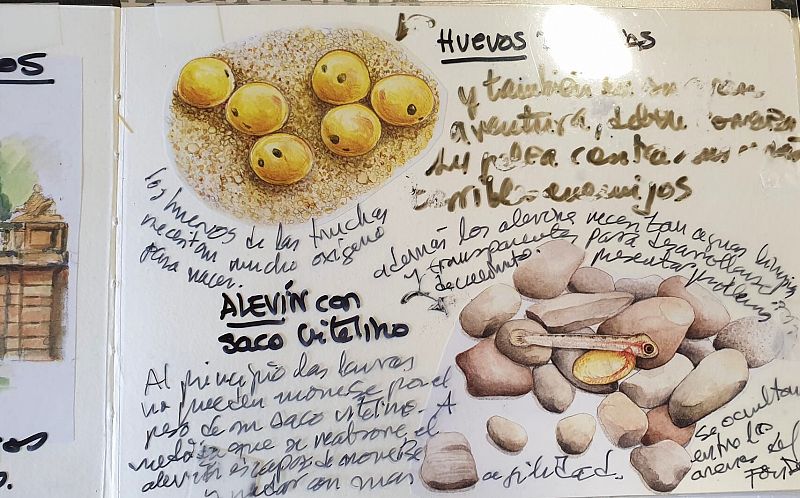 HUEVOS
y también
aventura, debe
su pelea contra
terribles enemigos
los huevos de las truchas
necesitan mucho oxígeno
para nacer.
además los alevines necesitan aguas limpias
y transparentes para desarrollarse
presentar problemas
de crecimiento.
ALEVÍN con
saco vitelino
Al principio las larvas
no pueden moverse por el
peso de su saco vitelino. A
medida que se reabsorve, el
alevín es capaz de moverse
y nadar con mas agilidad.
se ocultan
entre las
arenas del
fondo